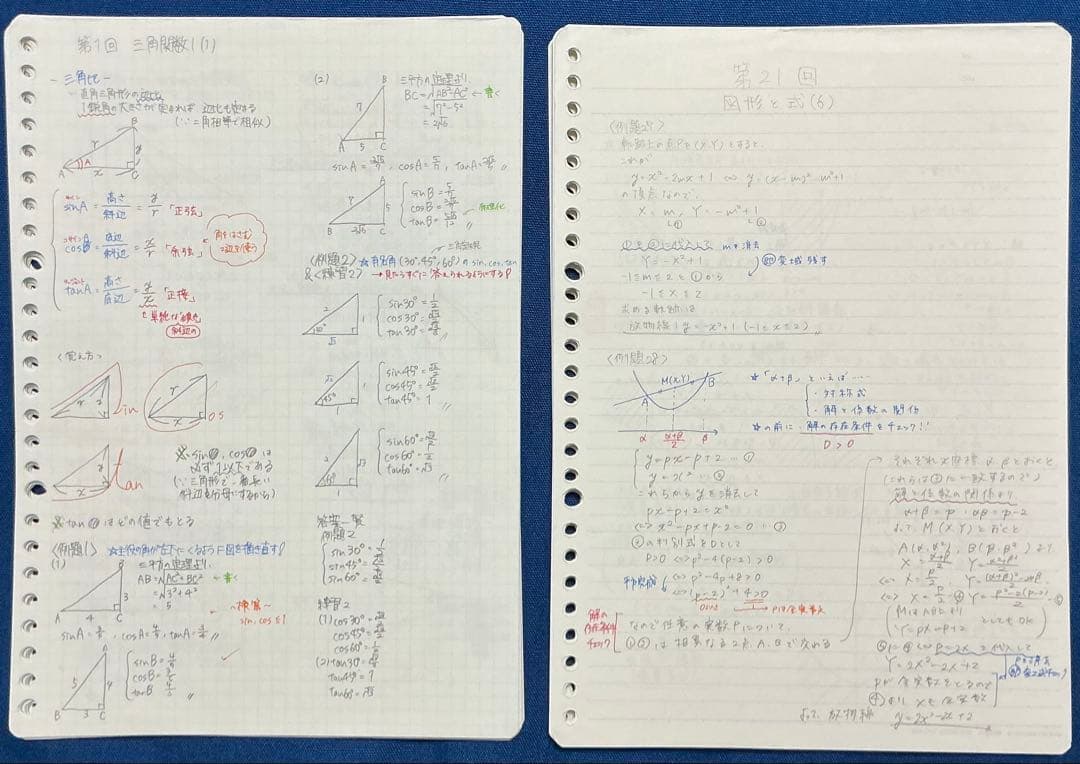 第1回 三角関数1(1)
－三角比－
直角三角形の辺比
1鋭角の大きさが定まれば 辺比も定まる
(∵二角相等で相似)
B
r
y
A
x
C
サイン
sinA = 高さ/斜辺 = y/r 「正弦」
コサイン
cosA = 底辺/斜辺 = x/r 「余弦」
角をはさむ
2辺を使う
タンジェント
tanA = 高さ/底辺 = y/x 「正接」
斜辺の
〈覚え方〉
r
y
in
r
x
os
y
x
tan
※ sin, cos は
必ず1以下である
(∵三角形で一番長い
斜辺を分母にするから)
※ tan はどの値でもとる
〈例題1〉 ☆主役の角が左下にくるように図を描き直す!
(1)
三平方の定理より
AB=√AC²+BC² ←書く
=√3²+4²
= 5
B
3
A 4 C
〜検算〜
sin, cos ≤ 1
sinA= 3/5, cosA= 4/5, tanA= 3/4 〃
A
5
4
B 3 C
sinB= 4/5
cosB= 3/5
tanB= 4/3
(2)
三平方の定理より
BC=√AB²-AC² ←書く
=√7²-5²
=2√6
B
7
A 5 C
sinA= 2√6/7, cosA= 5/7, tanA= 2√6/5 〃
A
7
5
B 2√6 C
sinB= 5/7
cosB= 2√6/7
tanB= 5√6/12
有理化
〈例題2〉 ☆有名角(30°,45°,60°)の sin, cos, tan
&〈練習2〉 →見たらすぐに答えられるようにする!
2
1
30°
√3
sin30°= 1/2
cos30°= √3/2
tan30°= √3/3
√2
1
45°
1
sin45°= √2/2
cos45°= √2/2
tan45°= 1
2
√3
1
sin60°= √3/2
cos60°= 1/2
tan60°= √3
答案一覧
例題2
sin30°= 1/2
sin45°= √2/2
sin60°= √3/2
練習2
(1) cos30°= √3/2
cos45°= √2/2
cos60°= 1/2
(2) tan30°= √3/3
tan45°= 1
tan60°= √3
第21回
図形と式(6)
〈例題27〉
軌跡上の点Pを(X,Y)とすると、
これが
y=x²-2mx+1 ⇔ y=(x-m)²-m²+1
の頂点なので、
X = m, Y = -m²+1
① ②
①を②に代入して mを消去
Y=-X²+1
変域残す
-1≤m≤2 と ①から
-1≤X≤2
求める軌跡は
放物線 y=-x²+1 (-1≤x≤2)〃
〈例題28〉
M(X,Y)
A
B
α
α+β/2
β
☆「α+β」といえば……
・対称式
・解と係数の関係
☆の前に 解の存在条件をチェック!!
D>0
y=px-p+2 …①
y=x² …②
これらから yを消去して
px-p+2=x²
⇔ x²-px+p-2=0 …③
③の判別式をDとして
D>0 ⇔ p²-4(p-2)>0
平方完成
⇔ p²-4p+8>0
⇔ (p-2)²+4>0
0以上
pは全実数
解の
存在条件
チェック
なので任意の実数pについて、
①②は相異なる2点A, Bで交わる
それぞれx座標 α, βとおくと
(これらは③に一致するので)
解と係数の関係より
α+β=p, αβ=p-2
よって M(X,Y)とおくと
A(α,α²), B(β,β²)より
X= α+β/2, Y= α²+β²/2
⇔ X= p/2, Y= (α+β)²-2αβ/2
⇔ X= p/2 ④ Y= p²-2(p-2)/2 ⑤
(MはAB上より
Y=pX-p+2 としてもOK)
④ ⇔ p=2X を代入して
Y=2X²-2X+2
pが全実数をとるので
④より Xも全実数
よって、放物線 y=2x²-2x+2